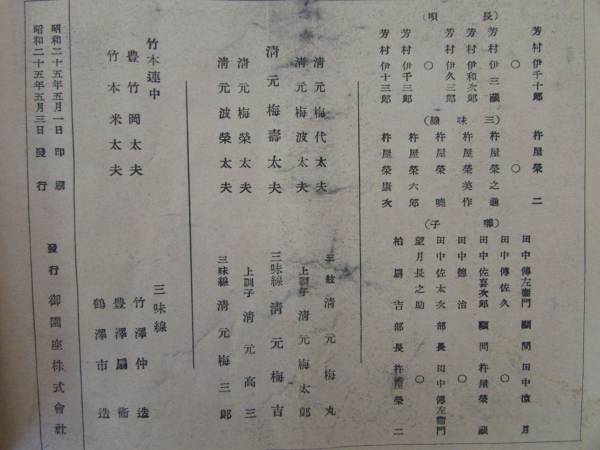 (長唄)
芳村伊十郎
○
芳村伊三蔵
芳村伊和次郎
芳村伊久三郎
○
芳村伊千三郎
芳村伊十三郎
(三味線)
杵屋榮二
○
杵屋榮之
杵屋榮美作
杵屋榮
杵屋榮六郎
杵屋榮次
(囃子)
田中傳左衞門
田中傳佐久
田中佐喜次郎
田中德治
田中佐太次郎
望月長之助
柏扇吉
顧問 田中凉月
○
顧問 杵屋榮蔵
○
部長 田中傳左衞門
○
部長 杵屋榮二
清元梅代太夫
清元梅波太夫
清元梅壽太夫
清元梅榮太夫
清元波榮太夫
三絃 清元梅丸
上調子 清元梅太郎
三味線 清元梅吉
上調子 清元高三
三味線 清元梅三郎
竹本連中
豊竹岡太夫
竹本米太夫
三味線
竹澤仲造
豊澤扇衞
鶴澤市造
昭和二十五年五月一日印刷
昭和二十五年五月三日發行
發行 御園座株式會社